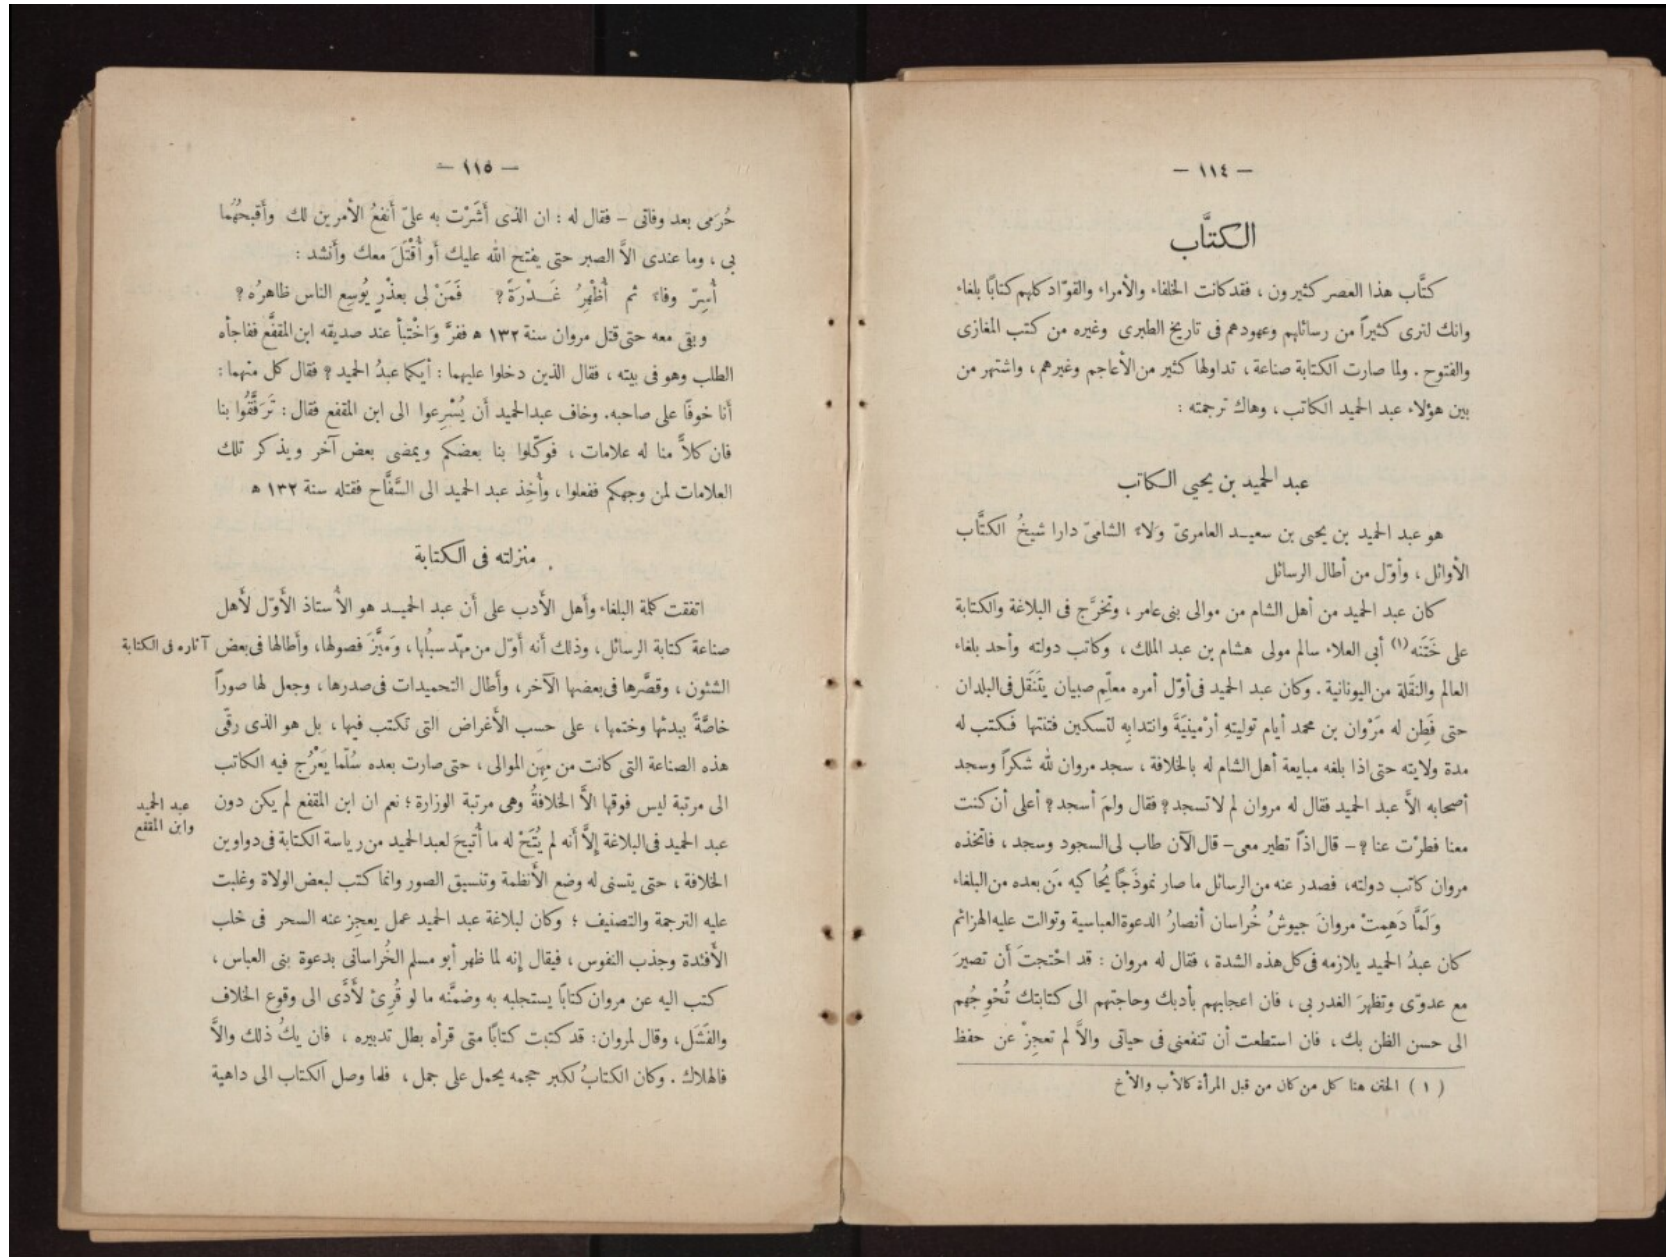 — ١١٤ —
الكتَّاب
كتَّاب هذا العصر كثيرون ، فقد كانت الخلفاء والأمراء والقوّاد كلهم كتابًا بلغاء
وانك لترى كثيراً من رسائلهم وعهودهم فى تاريخ الطبرى وغيره من كتب المغازى
والفتوح . ولما صارت الكتابة صناعة ، تداولها كثير من الأعاجم وغيرهم ، واشتهر من
بين هؤلاء عبد الحميد الكاتب ، وهاك ترجمته :
عبد الحميد بن يحيي الكاتب
هو عبد الحميد بن يحيى بن سعيد العامرىّ وَلاءً الشامىّ دارا شيخُ الكتَّاب
الأوائل ، وأوّل من أطال الرسائل
كان عبد الحميد من أهل الشام من موالى بنى عامر ، وتخرَّج فى البلاغة والكتابة
على خَتَنه (١) أبي العلاء سالم مولى هشام بن عبد الملك ، وكاتب دولته وأحد بلغاء
العالم والنقَلة من اليونانية . وكان عبد الحميد فى أوّل أمره معلِّم صبيان يتَنَقل فى البلدان
حتى فَطِن له مَرْوان بن محمد أيام توليتهِ أرْمينيَةَ وانتدابِه لتسكين فتنتها فكتب له
مدة ولايته حتى اذا بلغه مبايعة أهل الشام له بالخلافة ، سجد مروان لله شكراً وسجد
أصحابه الاَّ عبد الحميد فقال له مروان لم لا تسجد ? فقال ولمَ أسجد ? أعلى أن كنت
معنا فطرْت عنا ? – قال اذاً تطير معى – قال الآن طاب لى السجود وسجد ، فاتخذه
مروان كاتب دولته، فصدر عنه من الرسائل ما صار نموذَجًا يُحاكيه مَن بعده من البلغاء
وَلَمَّا دَهِمتْ مروانَ جيوشُ خُراسان أنصارُ الدعوة العباسية وتوالت عليه الهزائم
كان عبدُ الحميد يلازمه فى كل هذه الشدة ، فقال له مروان : قد احْتجتَ أن تصيرَ
مع عدوّى وتظهرَ الغدر بى ، فان اعجابهم بأدبك وحاجتهم الى كتابتك تُحْوِجُهم
الى حسن الظن بك ، فان استطعت أن تنفعنى فى حياتى والاَّ لم تعجِزْ عن حفظ
( ١ ) الختن هنا كل من كان من قبل المرأة كالأب والأخ
— ١١٥ —
حُرَمى بعد وفاتى – فقال له : ان الذى أشَرْت به علىّ أنفعُ الأمرين لك وأقبحُهُما
بى ، وما عندى الاَّ الصبر حتى يفتح الله عليك أو أُقْتَلَ معك وأنشد :
أُسِرّ وفاءً ثم أُظْهِرُ غَدْرَةً ? فَمَنْ لى بعذْرٍ يُوسِع الناس ظاهرُه ?
وبقى معه حتى قتل مروان سنة ١٣٢ ه ففرَّ وَاخْتبأ عند صديقه ابن المقفَّع ففاجأه
الطلب وهو فى بيته ، فقال الذين دخلوا عليهما : أيكما عبدُ الحميد ? فقال كل منهما :
أنا خوفًا على صاحبه. وخاف عبد الحميد أن يُسْرِعوا الى ابن المقفع فقال : تَرَفَّقُوا بنا
فان كلاًّ منا له علامات ، فوكّلوا بنا بعضكم ويمضى بعض آخر ويذكر تلك
العلامات لمن وجهكم ففعلوا ، وأُخِذ عبد الحميد الى السَّفَّاح فقتله سنة ١٣٢ ه
منزلته فى الكتابة
اتفقت كلمة البلغاء وأهل الأدب على أن عبد الحميد هو الأُستاذ الأوّل لأهل
صناعة كتابة الرسائل، وذلك أنه أوّل من مهّد سبُلها ، وَميَّزَ فصولها، وأطالها فى بعض
آثاره فى الكتابة
الشئون ، وقصَّرها فى بعضها الآخر ، وأطال التحميدات فى صدرها ، وجعل لها صوراً
خاصَّةً ببدئها وختمها ، على حسب الأغراض التى تكتب فيها ، بل هو الذى رقّى
هذه الصناعة التى كانت من مِهَن الموالى ، حتى صارت بعده سُلّما يَعْرُج فيه الكاتب
الى مرتبة ليس فوقها الاَّ الخلافةُ وهى مرتبة الوزارة ؛ نعم ان ابن المقفع لم يكن دون
عبد الحميد
وابن المقفع
عبد الحميد فى البلاغة إلاَّ أنه لم يُتَحْ له ما أُتيحَ لعبد الحميد من رياسة الكتابة فى دواوين
الخلافة ، حتى يتسنى له وضع الأنظمة وتنسيق الصور وانما كتب لبعض الولاة وغلبت
عليه الترجمة والتصنيف ؛ وكان لبلاغة عبد الحميد عمل يعجِز عنه السحر فى خلب
الأفئدة وجذب النفوس ، فيقال إنه لما ظهر أبو مسلم الخُراسانى بدعوة بنى العباس ،
كتب اليه عن مروان كتابًا يستجلبه به وضمَّنه ما لو قُرِئ لأدَّى الى وقوع الخلاف
والفَشَل، وقال لمروان: قد كتبت كتابًا متى قرأه بطل تدبيره ، فان يكُ ذلك والاَّ
فالهلاك . وكان الكتابُ لكبر حجمه يحمل على جمل ، فلما وصل الكتاب الى داهية